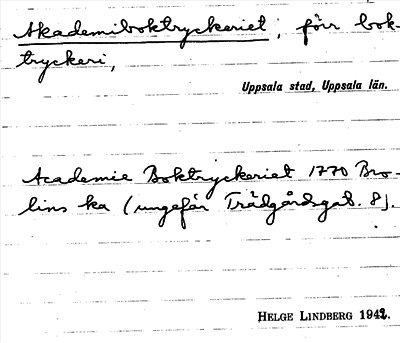 Akademiboktryckeriet, förr bok-
tryckeri,
Uppsala stad, Uppsala län.
Academie Boktryckeriet 1770 Bro-
lins ka (ungefär Trädgårdsgat. 8).
HELGE LINDBERG 1942.